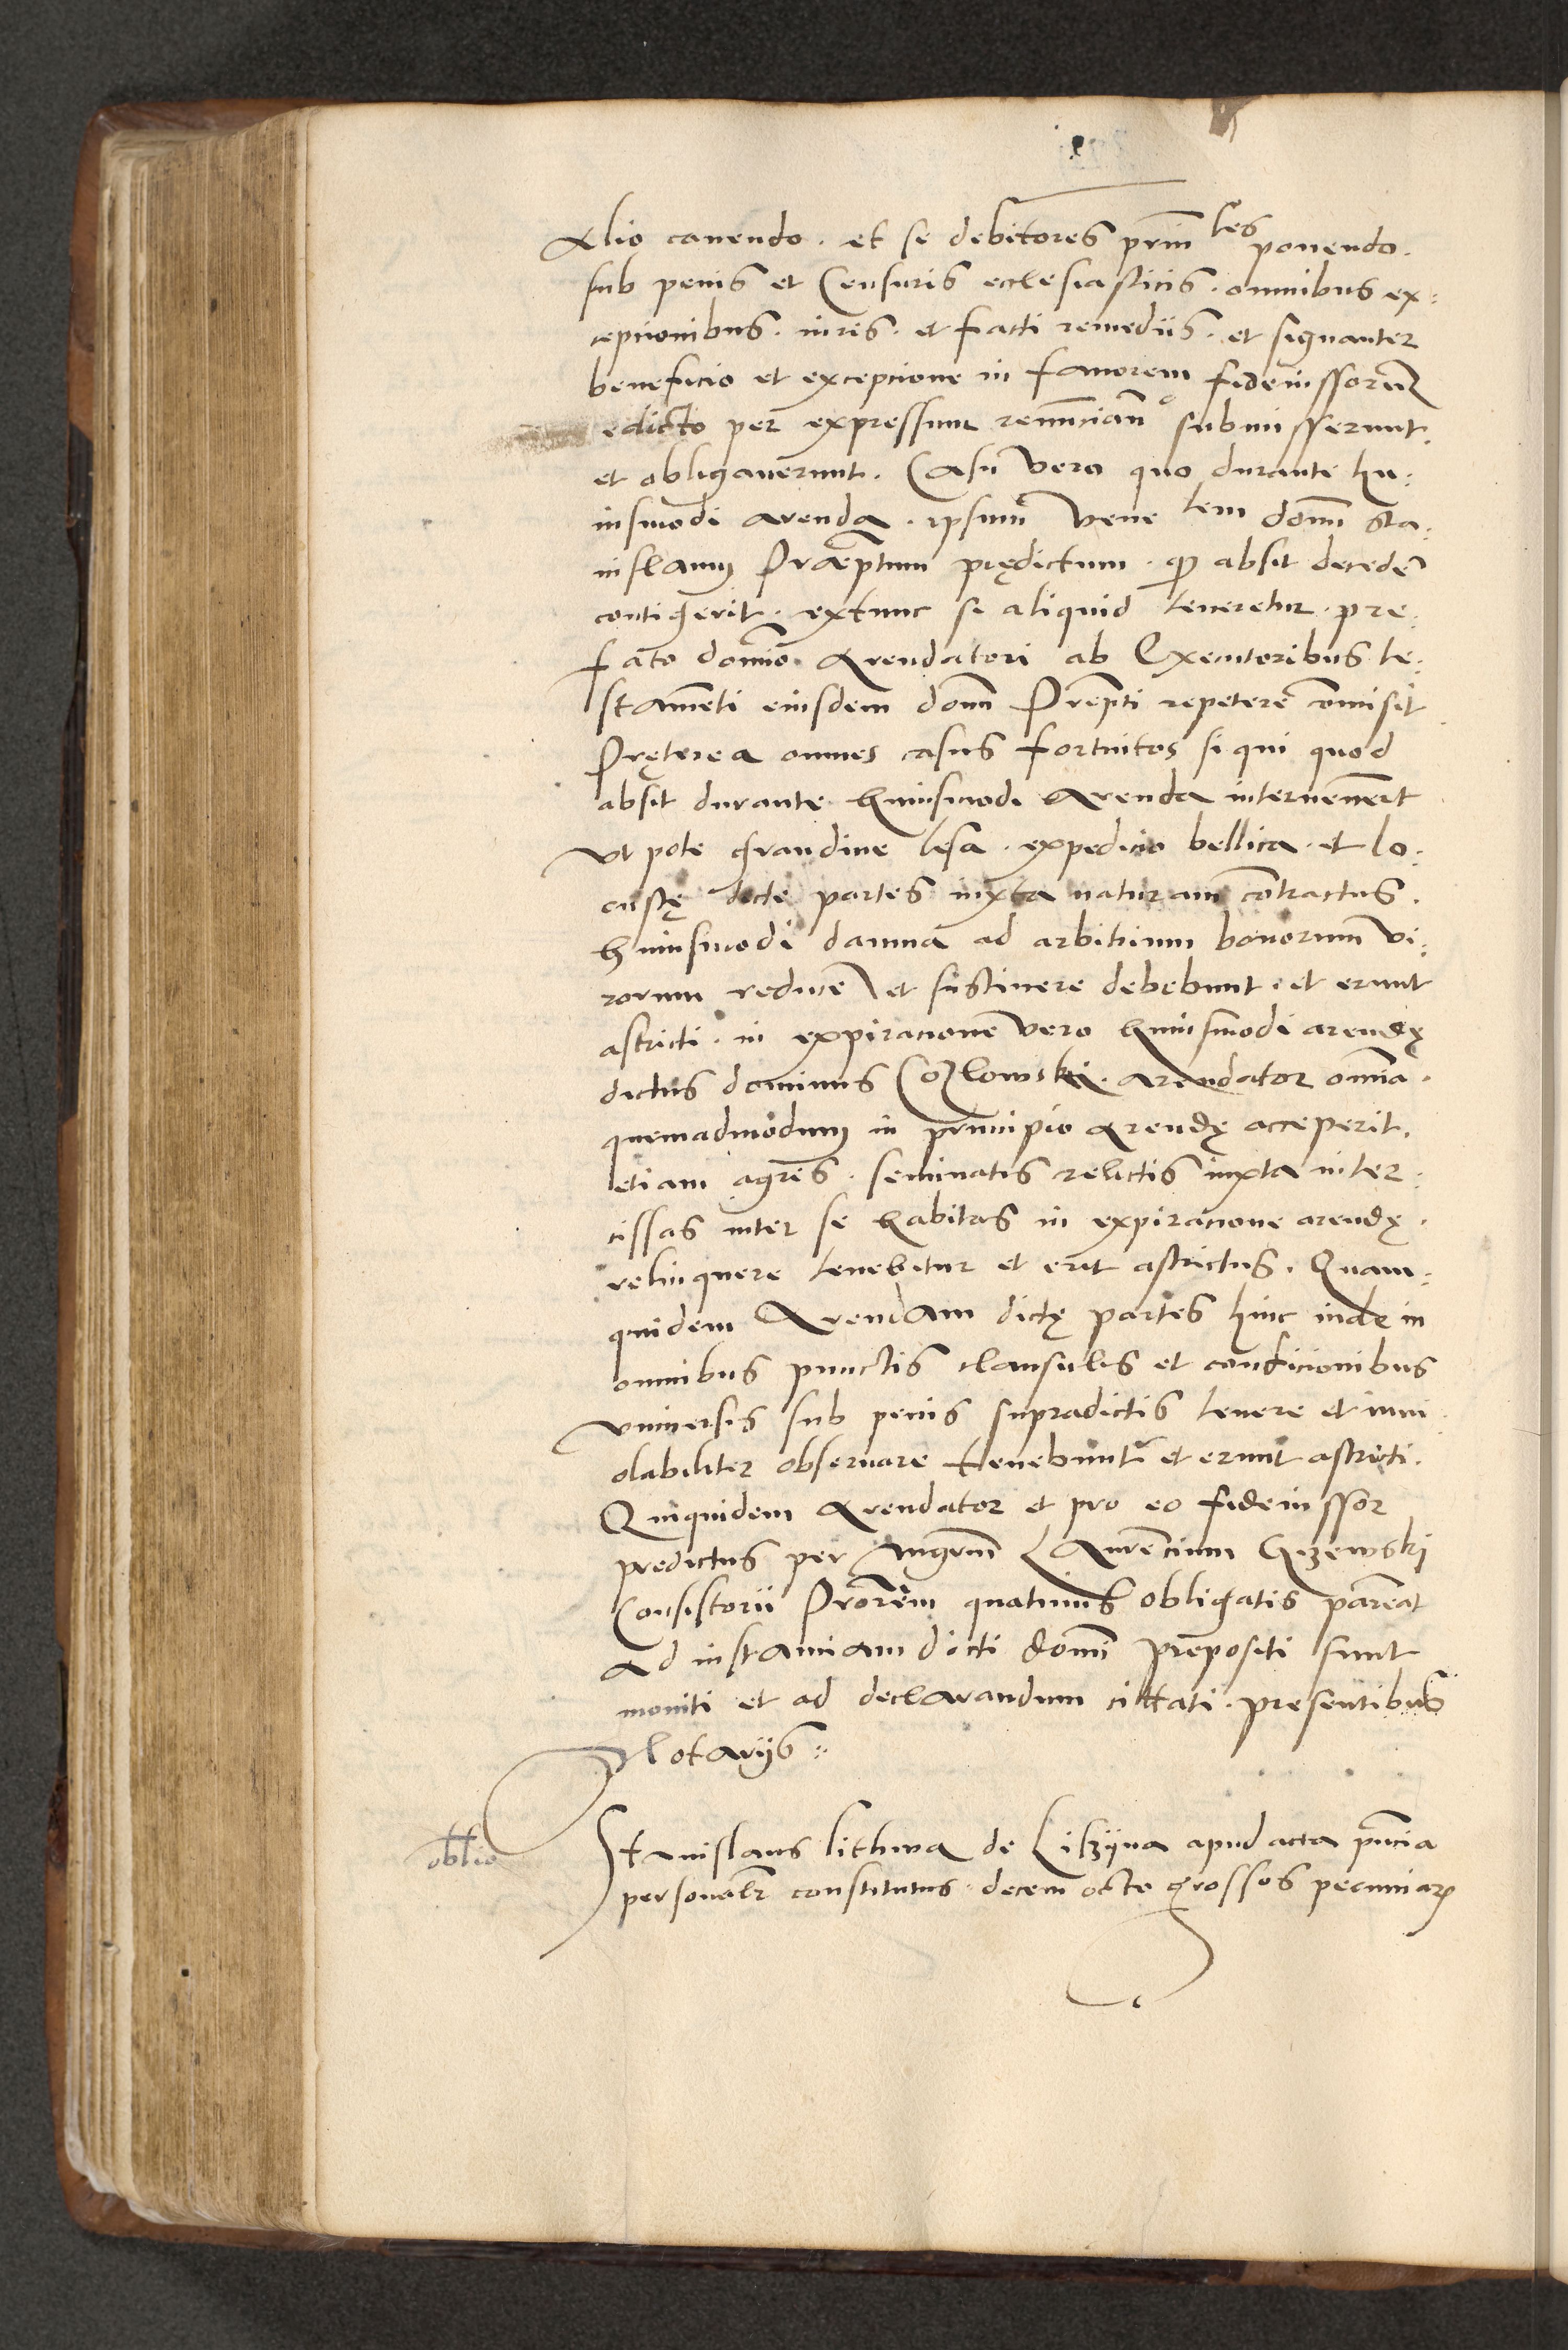 Alio cauendo. et se debitores prin les ponendo.
sub penis et Censuris ecclesiasticis. omnibus ex:
cepcionibus. iuris. et facti remediis. et signanter
beneficio et excepcione in fauorem fideiussorũ
edicto per expressum renũcianͩo submisserunt.
et obligauerunt. Casu vero quo durante hu:
iusmodi arenda. ipsum vene lem domĩ sta:
nislaum Præptum prędictum. qd absit decedẽ
contigerit. extunc si aliquid teneretur. pre:
fato domino Arendatori ab Executoribus te:
stamẽti eiusdem domĩ Prepti repetere cõmisit
Pręterea omnes casus fortuitos si qui quod
absit durante huiusmodi Arenda interuenerĩt
vt pote grandine lesa. expedicio bellica. et lo:
custę dicte partes iuxta naturam cõtractus.
huiusmodi damna ad arbitrium bonorum vi:
rorum reducẽ et sustinere debebunt. et erunt
astricti. in expiracione vero huiusmodi arendę
dictus dominus Cozlowski. arendator omnia.
quemadmodum in principio Arendę acceperit.
etiam agres. seminatis relictis iuxta inter:
cissas inter se habitas in expiracione arendę.
relinquere tenebitur et erit astrictus. Quam:
quidem Arendam dictę partes hinc inde in
omnibus punctis clausulis et condicionibus
vniuersis sub penis supradictis tenere et inui
olabiliter obseruare tenebunt᷑ et erunt astricti.
Quiquidem Arendator et pro eo fideiussor
predictus per Mgrm̃ Laurẽcium Gizewski
Consistorii Prorẽm quatinus obligatis pareãt
Ad instanciam dicti domĩ prepositi sunt
moniti et ad declarandum cittati. presentibus
Notariis:
oblio
Stanislaus lithwa de Likzijna apud acta pñcia
personalr constitutus. decem octo grossos pecuniarꝝ